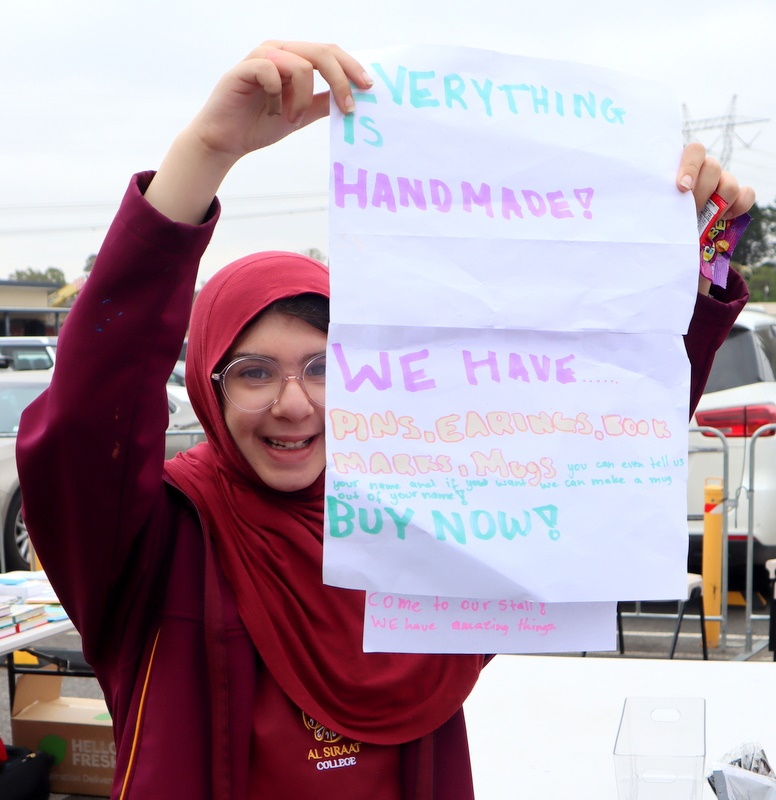 EVERYTHING
IS
HANDMADE!
WE HAVE......
PINS, EARINGS, BOOK
MARKS, Mugs you can even tell us
your name and if you want we can make a mug
out of your name!
BUY NOW!
COME to our Stall!
WE have amazing things
AL SIRAAT
COLLEGE
HELLO
FRESH